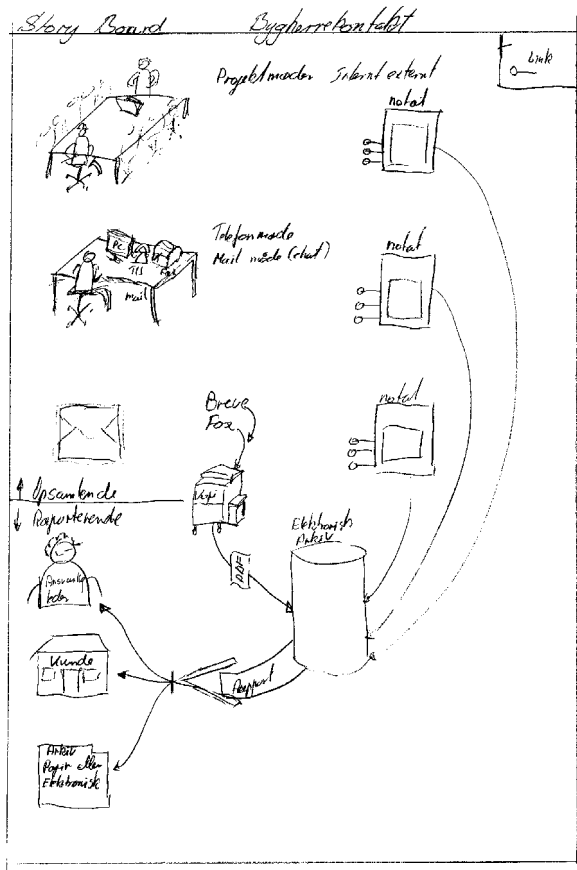 Story Board
Bygherrekontakt
Link
Projektmøder Internt externt
notat
Telefonmøde
Mail møde (chat)
PC
Tlf
Fax
Mail
notat
Breve
Fax
notat
Opsamlende
Rapporterende
Elektronisk
Arkiv
PDF
Ansvarlig
leder
Kunde
Rapport
Arkiv
Papir eller
Elektronisk